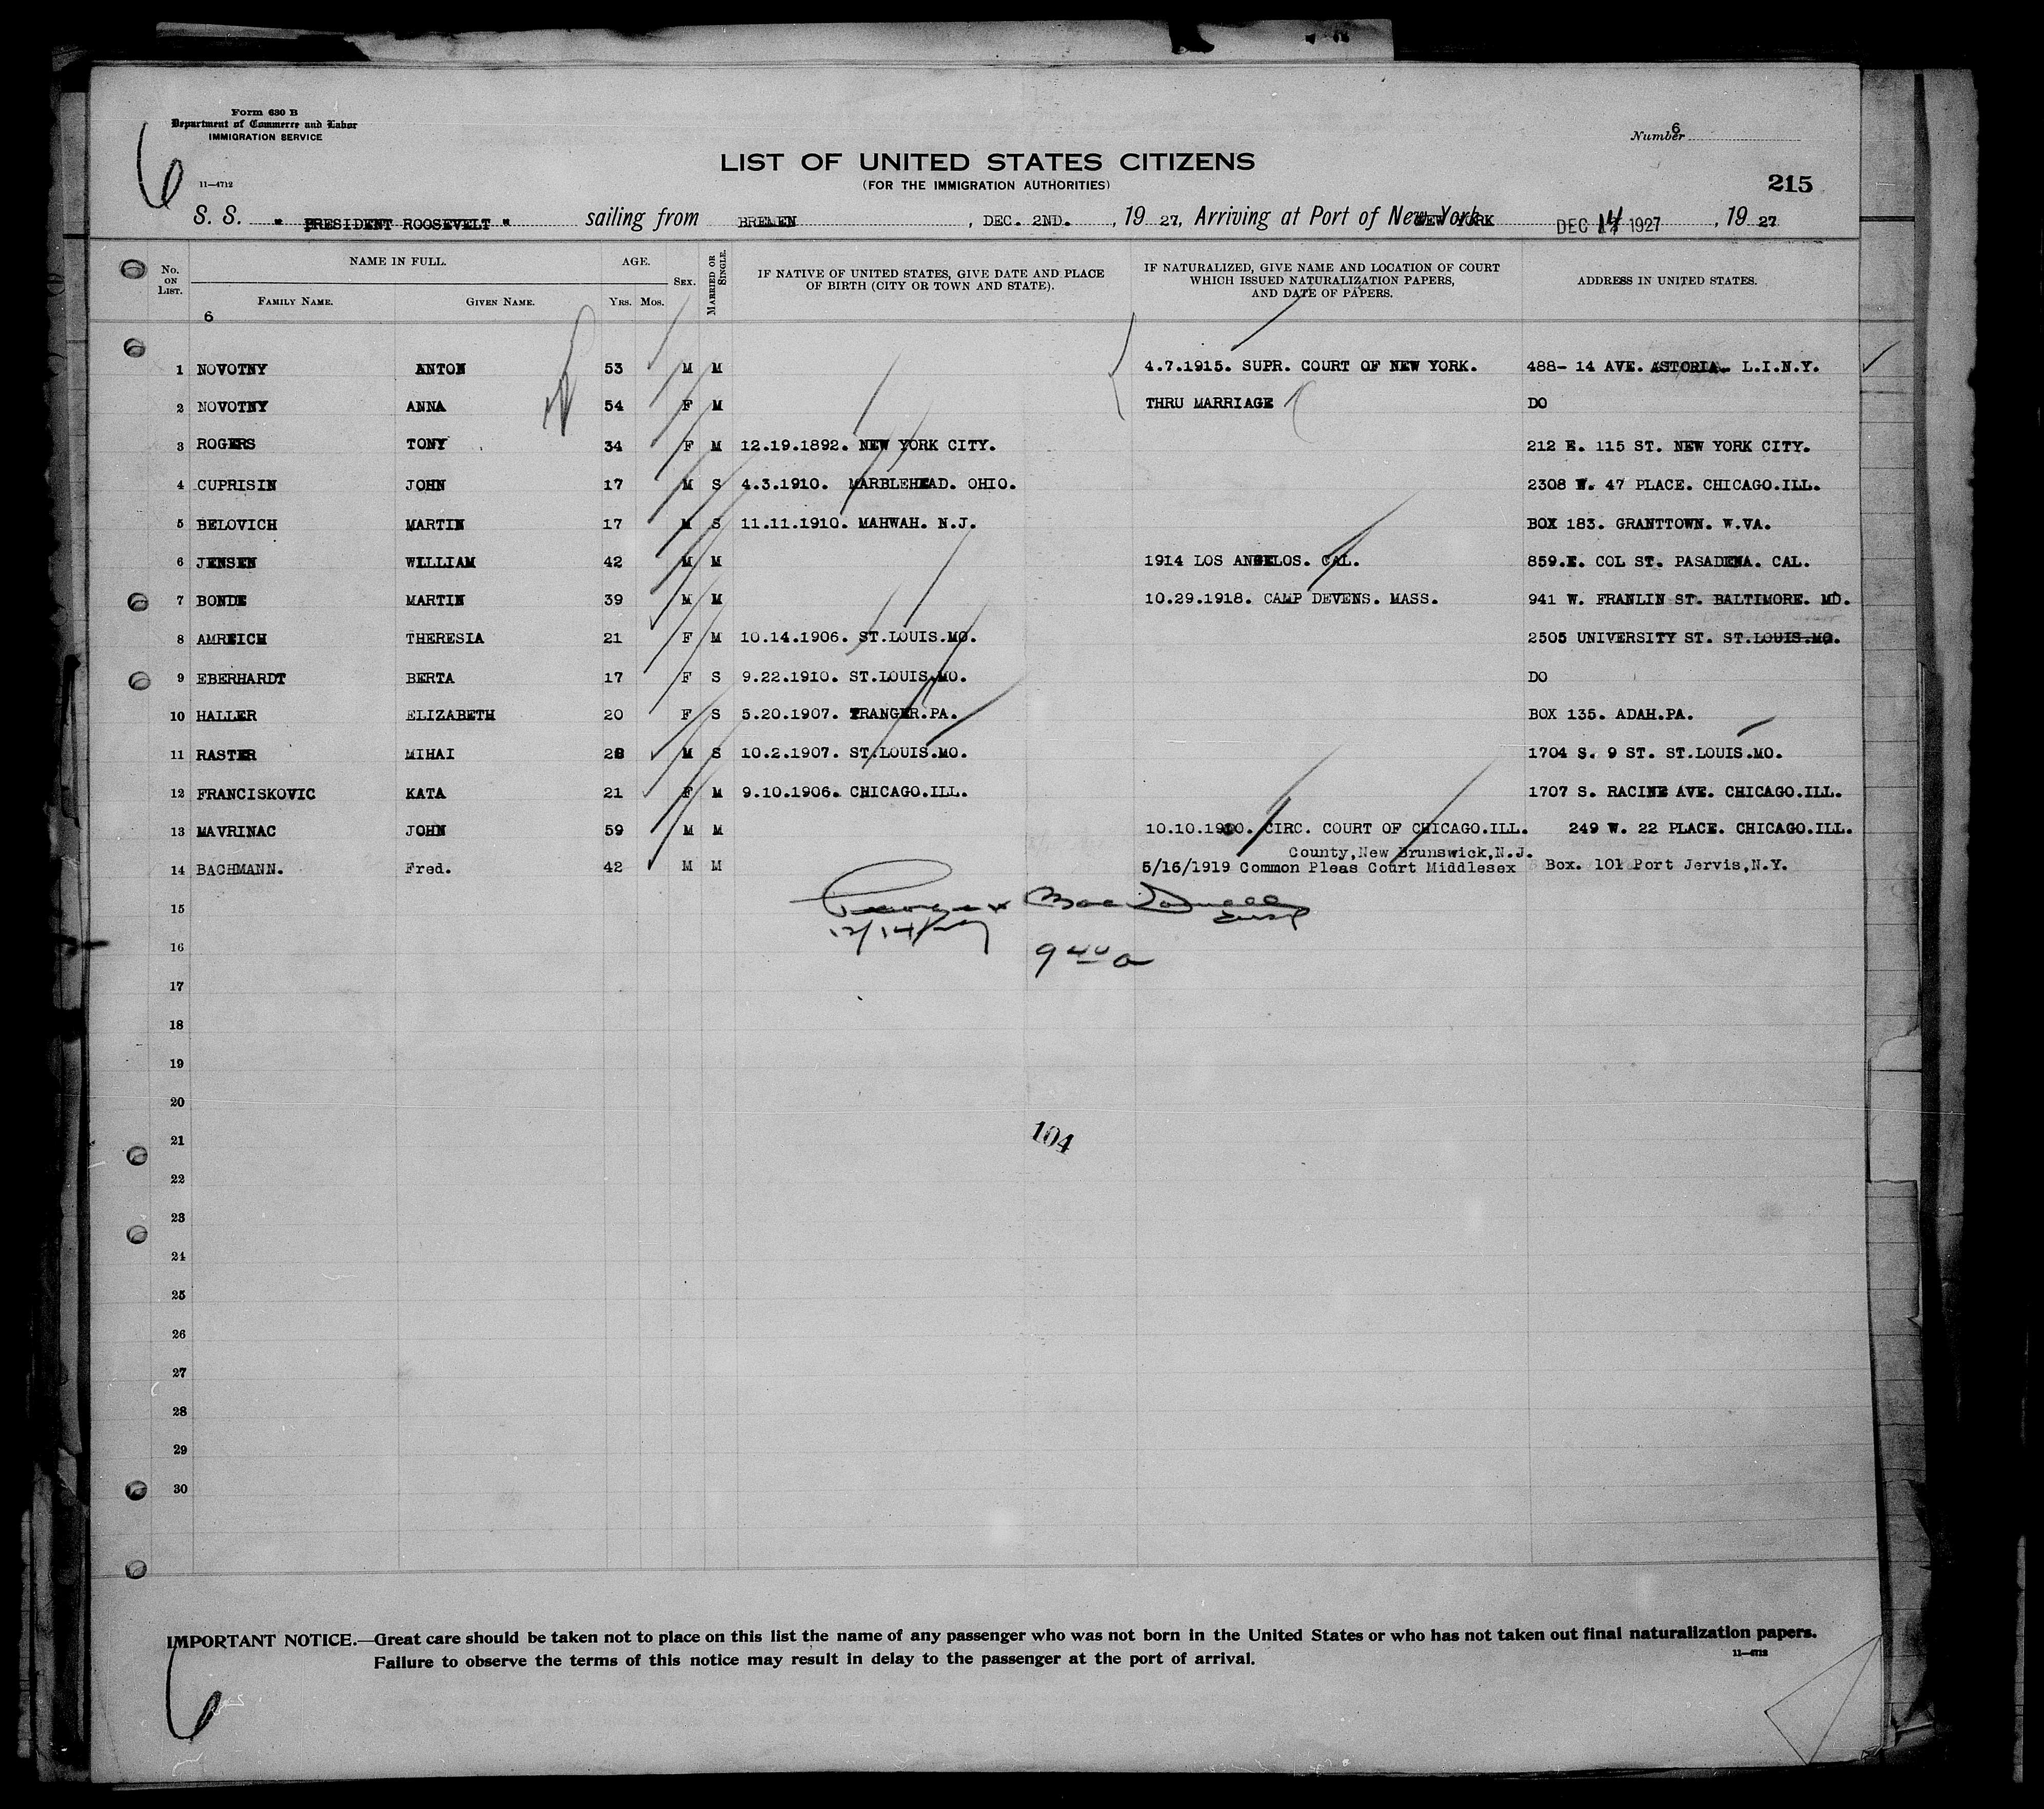 Form 630 B
Department of Commerce and Labor
IMMIGRATION SERVICE
6
11—4712
Number 6
LIST OF UNITED STATES CITIZENS
(FOR THE IMMIGRATION AUTHORITIES)
215
S. S. " PRESIDENT ROOSEVELT " sailing from BREMEN, DEC. 2ND., 19 27, Arriving at Port of New York NEW YORK DEC 14 1927, 19 27
No. ON LIST. NAME IN FULL. FAMILY NAME. GIVEN NAME. AGE. YRS. MOS. SEX. MARRIED OR SINGLE. IF NATIVE OF UNITED STATES, GIVE DATE AND PLACE OF BIRTH (CITY OR TOWN AND STATE). IF NATURALIZED, GIVE NAME AND LOCATION OF COURT WHICH ISSUED NATURALIZATION PAPERS, AND DATE OF PAPERS. ADDRESS IN UNITED STATES.
6
1 NOVOTNY ANTON 53 M M 4.7.1915. SUPR. COURT OF NEW YORK. 488- 14 AVE. ASTORIA. L.I.N.Y.
2 NOVOTNY ANNA 54 F M THRU MARRIAGE DO
3 ROGERS TONY 34 F M 12.19.1892. NEW YORK CITY. 212 E. 115 ST. NEW YORK CITY.
4 CUPRISIN JOHN 17 M S 4.3.1910. MARBLEHEAD. OHIO. 2308 W. 47 PLACE. CHICAGO.ILL.
5 BELOVICH MARTIN 17 M S 11.11.1910. MAHWAH. N.J. BOX 183. GRANTTOWN. W.VA.
6 JENSEN WILLIAM 42 M M 1914 LOS ANGELOS. CAL. 859.E. COL ST. PASADENA. CAL.
7 BONDE MARTIN 39 M M 10.29.1918. CAMP DEVENS. MASS. 941 W. FRANLIN ST. BALTIMORE. MD.
8 AMREICH THERESIA 21 F M 10.14.1906. ST.LOUIS.MO. 2505 UNIVERSITY ST. ST.LOUIS.MO.
9 EBERHARDT BERTA 17 F S 9.22.1910. ST.LOUIS.MO. DO
10 HALLER ELIZABETH 20 F S 5.20.1907. TRANGER.PA. BOX 135. ADAH.PA.
11 RASTER MIHAI 28 M S 10.2.1907. ST.LOUIS.MO. 1704 S. 9 ST. ST.LOUIS.MO.
12 FRANCISKOVIC KATA 21 F M 9.10.1906. CHICAGO.ILL. 1707 S. RACINE AVE. CHICAGO.ILL.
13 MAVRINAC JOHN 59 M M 10.10.1900. CIRC. COURT OF CHICAGO.ILL. 249 W. 22 PLACE. CHICAGO.ILL.
County,New Brunswick,N.J.
14 BACHMANN. Fred. 42 M M 5/16/1919 Common Pleas Court Middlesex Box. 101 Port Jervis,N.Y.
15
12/14/27
16
9 40 a
17
18
19
20
21
104
22
23
24
25
26
27
28
29
30
IMPORTANT NOTICE.—Great care should be taken not to place on this list the name of any passenger who was not born in the United States or who has not taken out final naturalization papers.
Failure to observe the terms of this notice may result in delay to the passenger at the port of arrival.
11—4712
6